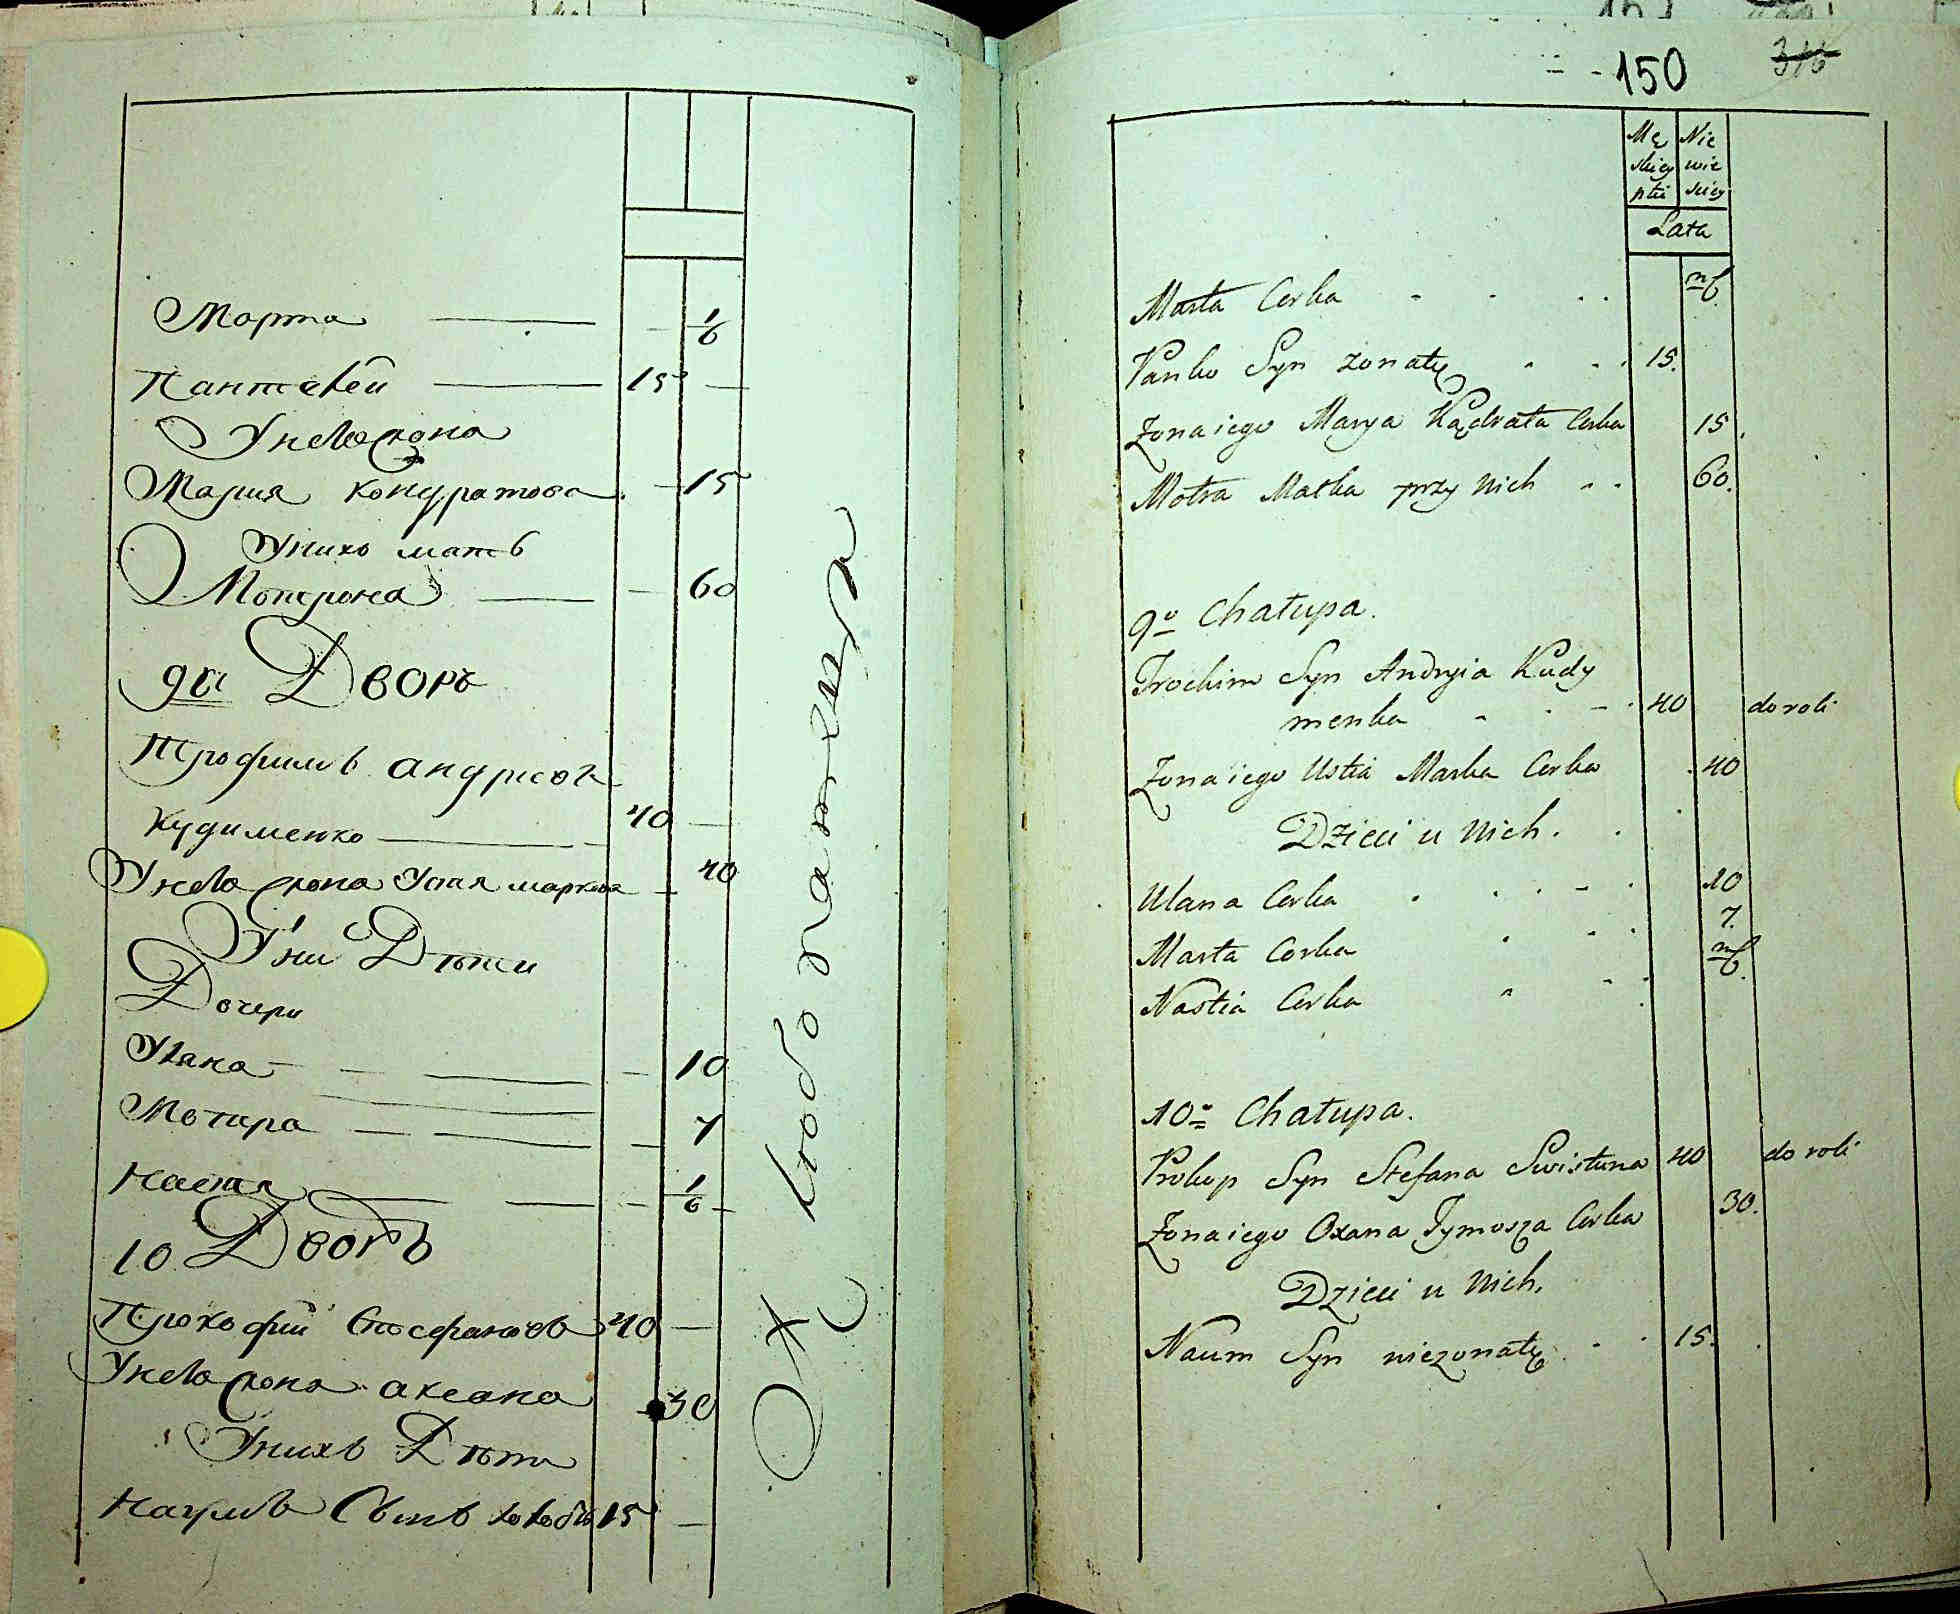 Марта 1/6
Пантелей 15
У него жона
Мария Кондратова 15
У нихъ мать
Мотрона 60
9й Дворъ
Трофимъ Андрисов
Кудименко 40
У него жона Устя Маркова 40
У ни Дѣти
Дочери
Улана 10
Мотара 7
Настя 1/6
10 Дворъ
Прокофий Стефановъ 40
У него жона Аксана 30
У нихъ Дѣти
Наумъ Сынъ холость 15
150 316
Mę Nie
skiey wie
płci sciey
Lata
Marta Corka m/6.
Panko Syn zonaty 15.
Zona iego Marya Kądrata Corka 15.
Motra Matka przy Nich 60.
9o Chałupa.
Trochim Syn Andryia Kudy
menka 40 do roli
Zona iego Ustia Marka Corka 40
Dzieci u Nich.
Ulana Corka 10
Marta Corka 7.
Nastia Corka m/6.
10o Chałupa.
Prokop Syn Stefana Swistuna 40 do roli
Zona iego Oxana Tymosza Corka 30.
Dzieci u Nich.
Naum Syn niezonaty 15.